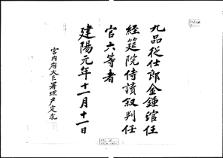 九品從仕郎金鍾濩任
經筵院侍讀叙判任
官六等者
建陽元年十一月十一日
宮內府大臣署理尹定求